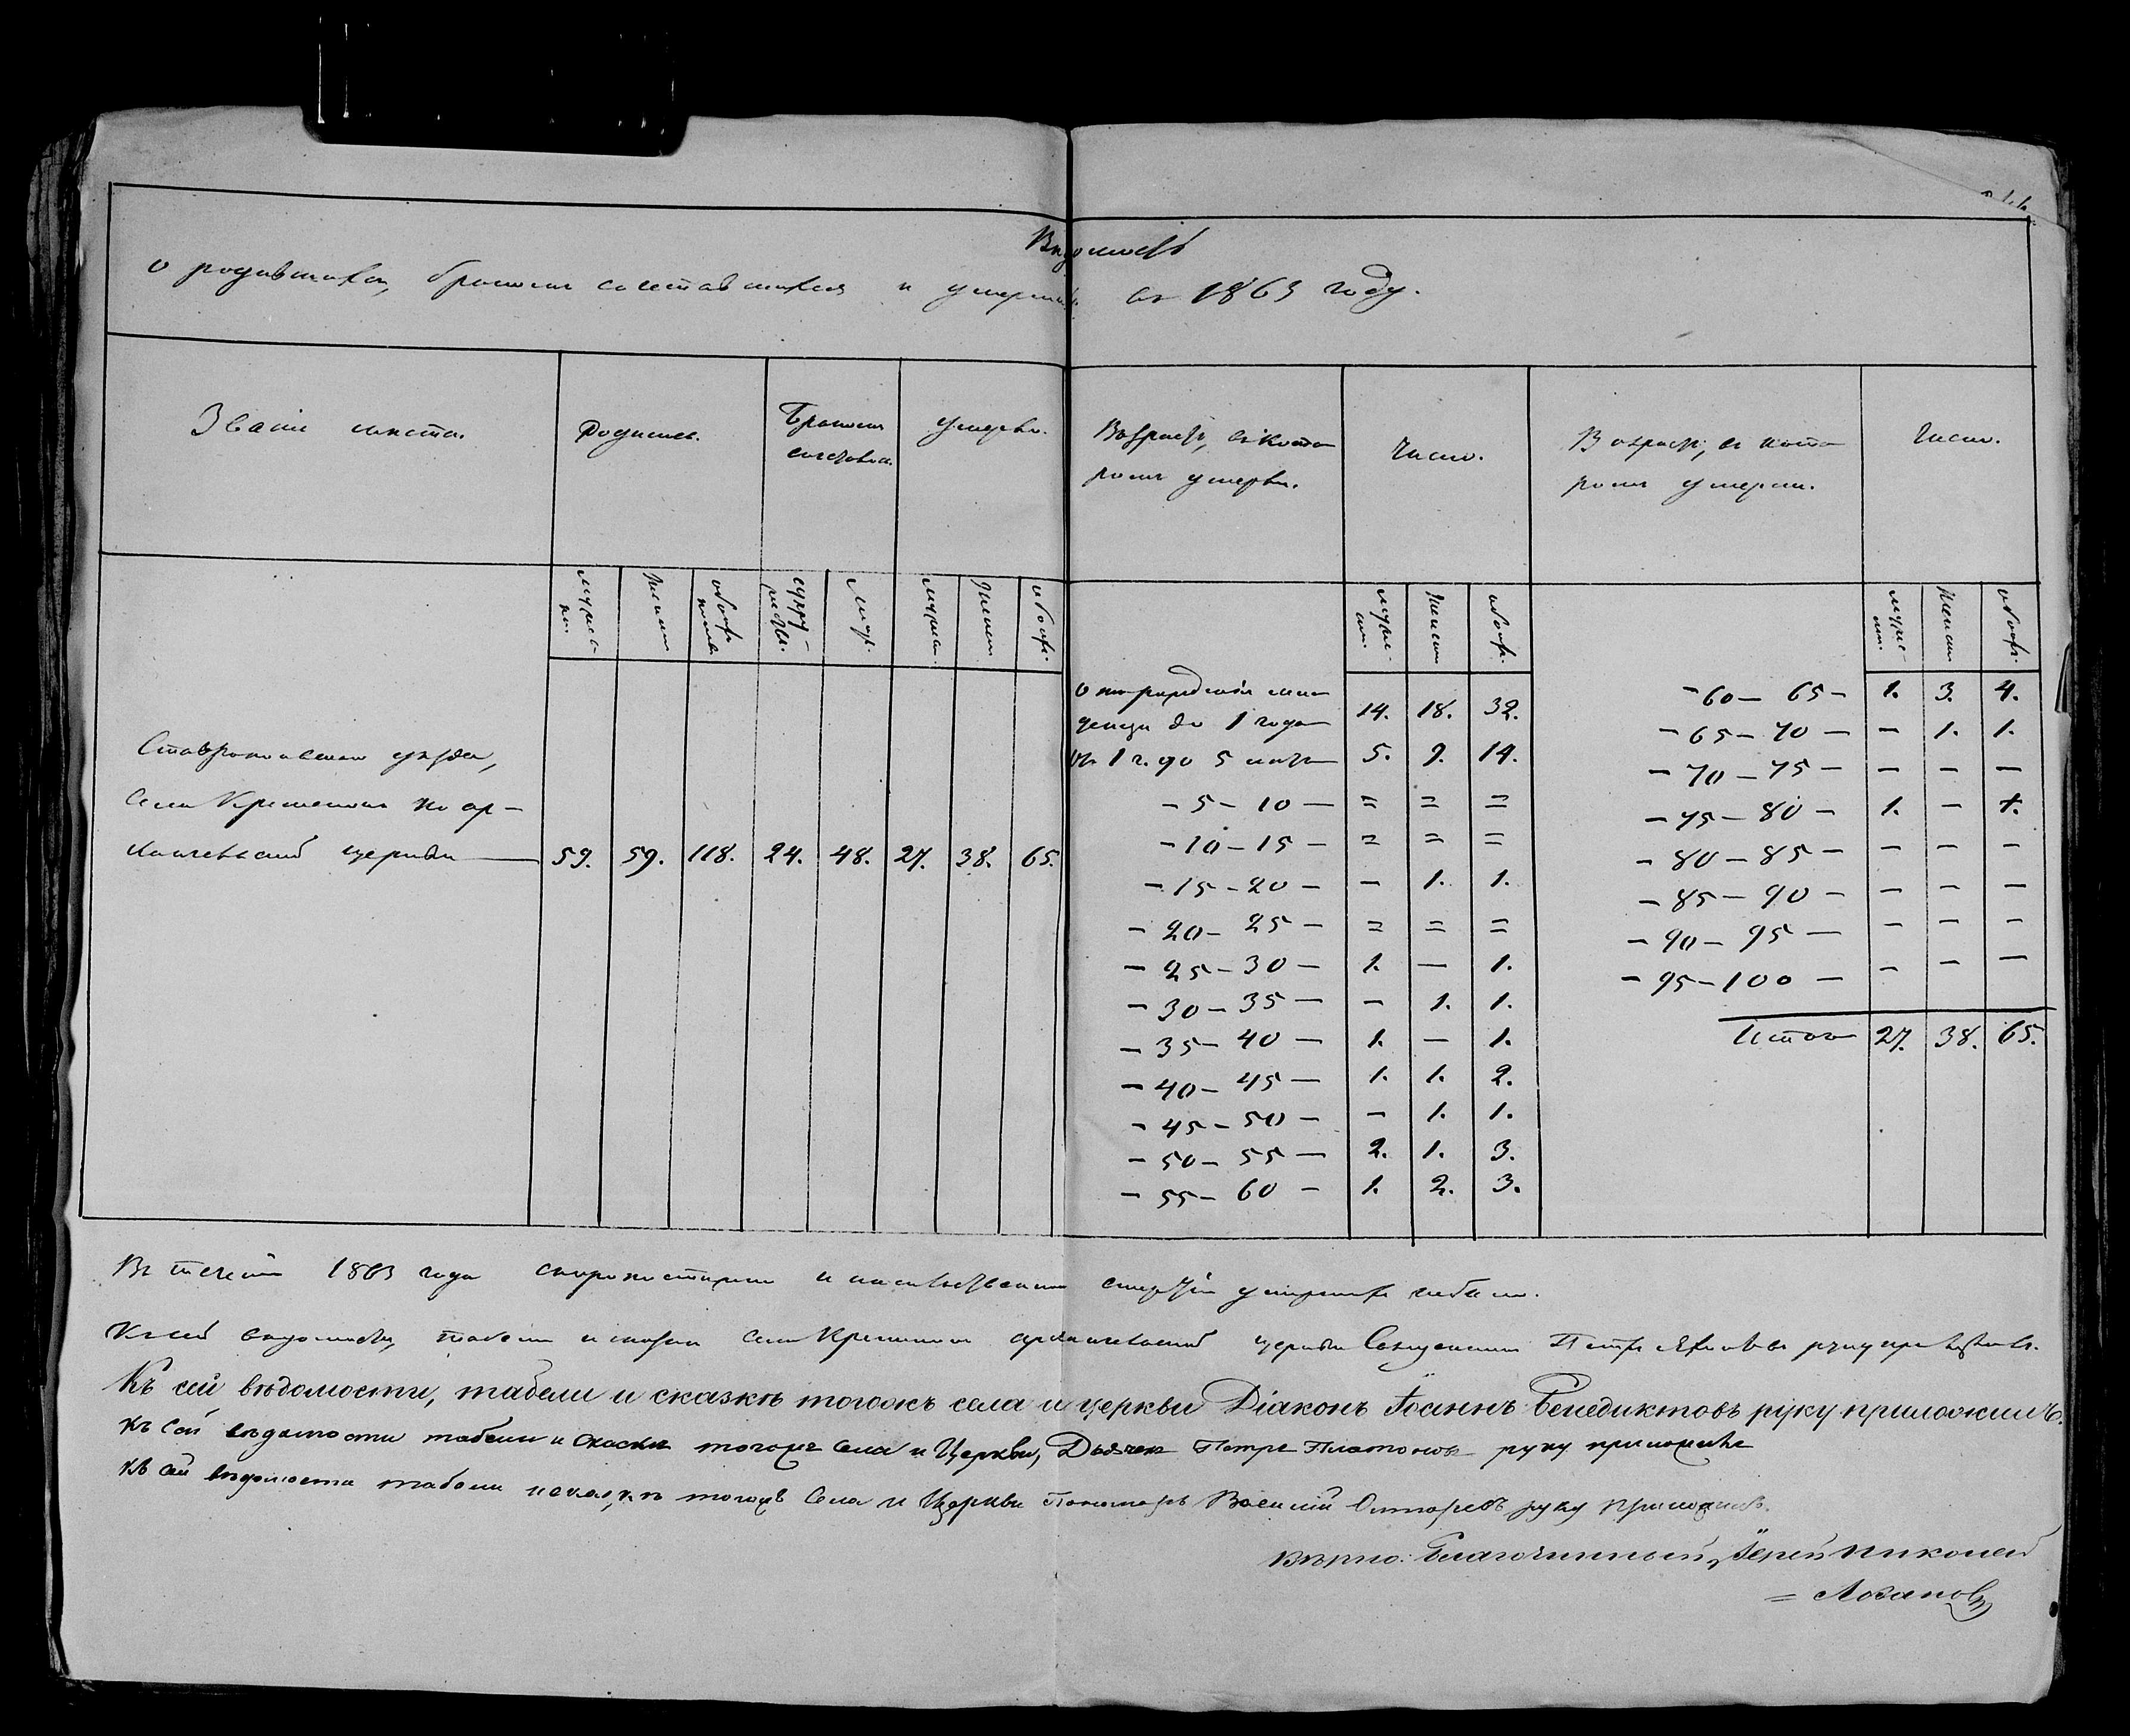 Вѣдомость
о родившихся, бракомъ сочетавшихся и умершихъ въ 1863 году.
Званіе мѣста.
Родились.
Бракомъ
сочетались.
Умерли.
Возрастъ, въ кото
ромъ умерли.
Число.
Возрастъ, въ кото
ромъ умерли.
Число.
мужес-
ка.
женска
обоего
пола
супру-
жест.
лиц.
мужеск.
женск.
обоего.
муже-
ска.
женска
обоего.
муже-
ска.
женска
обоего.
Ставропольскаго уѣзда,
села Кременокъ по ар-
хангельской церкви — 59. 59. 118. 24. 48. 27. 38. 65.
Отъ рожденія мла
денцы до 1 года 14. 18. 32.
отъ 1 г. до 5 лѣтъ 5. 9. 14.
- 5 - 10 — = = =
- 10 - 15 — = = =
- 15 - 20 — — 1. 1.
- 20 - 25 — = = =
- 25 - 30 — 1. — 1.
- 30 - 35 — — 1. 1.
- 35 - 40 — 1. — 1.
- 40 - 45 — 1. 1. 2.
- 45 - 50 — — 1. 1.
- 50 - 55 — 2. 1. 3.
- 55 - 60 — 1. 2. 3.
- 60 - 65 - 1. 3. 4.
- 65 - 70 — — 1. 1.
- 70 - 75 — — — —
- 75 - 80 — 1. — 1.
- 80 - 85 — — — —
- 85 - 90 — — — —
- 90 - 95 — — — —
- 95 - 100 — — — —
Итого 27. 38. 65.
Въ теченіи 1863 года скоропостижно и насильственно смертію умершихъ небыло.
Къ сей вѣдомости, табели и сказкѣ села Кременокъ архангельской церкви Священникъ Петръ руку приложилъ.
Къ сей вѣдомости, табели и сказкѣ тогожъ села и церкви Діаконъ Іоаннъ Бенедиктовъ руку приложилъ.
Къ сей вѣдомости табели и скаске тогоже села и Церкви, Дьячекъ Петръ Платоновъ руку приложилъ
къ сей вѣдомости табели и сказкѣ тогожъ Села и Церкви Пономарь Василій руку приложилъ.
Вѣрно: Благочинный, Іерей Николай
= Лованов